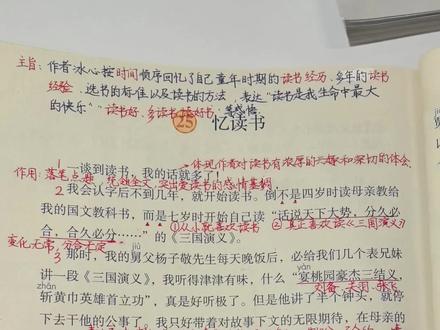 主旨：作者冰心按时间顺序回忆了自己童年时期的读书经历、多年的读书
经验、选书的标准以及读书的方法，表达“读书是我生命中最大
的快乐”“读书好、多读书、读好书”等感悟
25 忆读书
1 一谈到读书，我的话就多了！
体现作者对读书有浓厚的兴趣和深切的体会
作用：落笔点题，总领全文，突出爱读书的感情基调
2 我会认字后不到几年，就开始读书。倒不是四岁时读母亲教给
我的国文教科书，而是七岁时开始自己读“话说天下大势，分久必
①从小就喜欢读书 ②真正喜欢读《三国演义》
合，合久必分……”的《三国演义》。
变化无常，分合不定
jiù
3 那时，我的舅父杨子敬先生每天晚饭后，必给我们几个表兄妹
讲一段《三国演义》，我听得津津有味，什么“宴桃园豪杰三结义，
刘备、关羽、张飞
zhǎn
斩黄巾英雄首立功”，真是好听极了。但是他讲了半个钟头，就停
下去干他的公事了。我只好带着对故事下文的无限期待，在母亲的